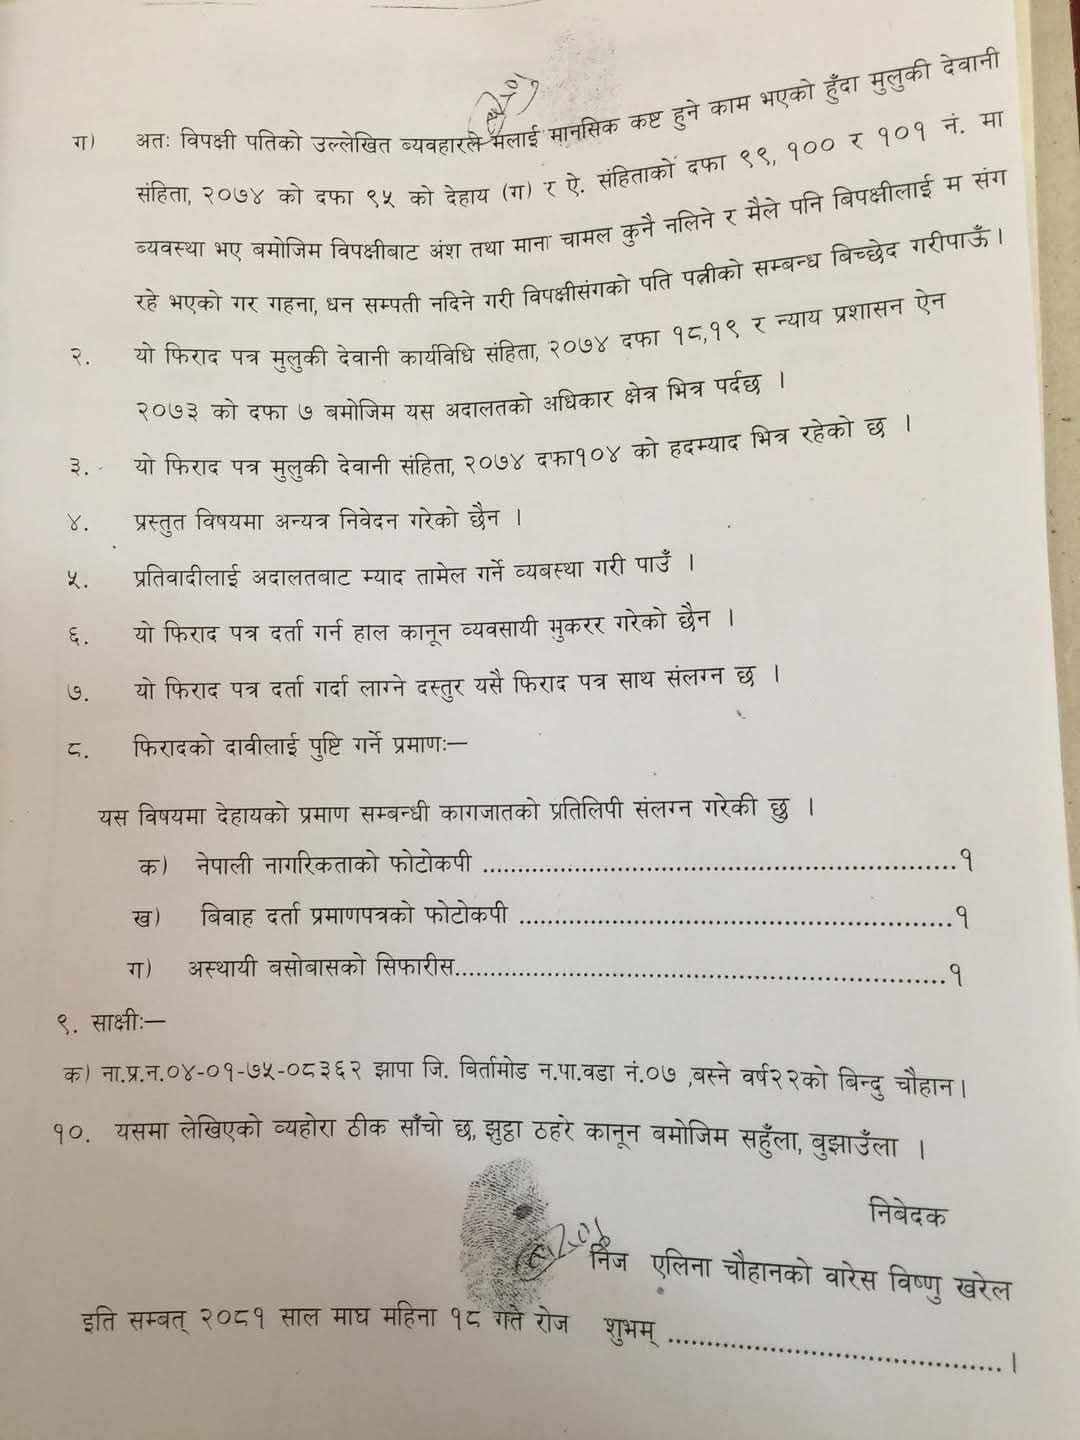 ग) अतः विपक्षी पतिको उल्लेखित व्यवहारले मलाई मानसिक कष्ट हुने काम भएको हुँदा मुलुकी देवानी
संहिता, २०७४ को दफा ९५ को देहाय (ग) र ऐ. संहिताको दफा ९९, १०० र १०१ नं. मा
ब्यवस्था भए बमोजिम विपक्षीबाट अंश तथा माना चामल कुनै नलिने र मैले पनि बिपक्षीलाई म संग
रहे भएको गर गहना, धन सम्पती नदिने गरी विपक्षीसंगको पति पत्नीको सम्बन्ध बिच्छेद गरीपाऊँ।
२. यो फिराद पत्र मुलुकी देवानी कार्यविधि संहिता, २०७४ दफा १८,१९ र न्याय प्रशासन ऐन
२०७३ को दफा ७ बमोजिम यस अदालतको अधिकार क्षेत्र भित्र पर्दछ ।
३. यो फिराद पत्र मुलुकी देवानी संहिता, २०७४ दफा१०४ को हदम्याद भित्र रहेको छ ।
४. प्रस्तुत विषयमा अन्यत्र निवेदन गरेको छैन ।
५. प्रतिवादीलाई अदालतबाट म्याद तामेल गर्ने व्यबस्था गरी पाउँ ।
६. यो फिराद पत्र दर्ता गर्न हाल कानून व्यवसायी मुकरर गरेको छैन ।
७. यो फिराद पत्र दर्ता गर्दा लाग्ने दस्तुर यसै फिराद पत्र साथ संलग्न छ ।
८. फिरादको दावीलाई पुष्टि गर्ने प्रमाणः—
यस विषयमा देहायको प्रमाण सम्बन्धी कागजातको प्रतिलिपी संलग्न गरेकी छु ।
क) नेपाली नागरिकताको फोटोकपी ........................................................................१
ख) बिवाह दर्ता प्रमाणपत्रको फोटोकपी ................................................................१
ग) अस्थायी बसोबासको सिफारीस.........................................................................१
९. साक्षीः—
क) ना.प्र.न.०४-०१-७५-०८३६२ झापा जि. बिर्तामोड न.पा.वडा नं.०७ ,बस्ने वर्ष२२को बिन्दु चौहान।
१०. यसमा लेखिएको व्यहोरा ठीक साँचो छ, झुट्ठा ठहरे कानून बमोजिम सहुँला, बुझाउँला ।
निबेदक
निज एलिना चौहानको वारेस विष्णु खरेल
इति सम्बत् २०८१ साल माघ महिना १८ गते रोज शुभम् ..................................................।